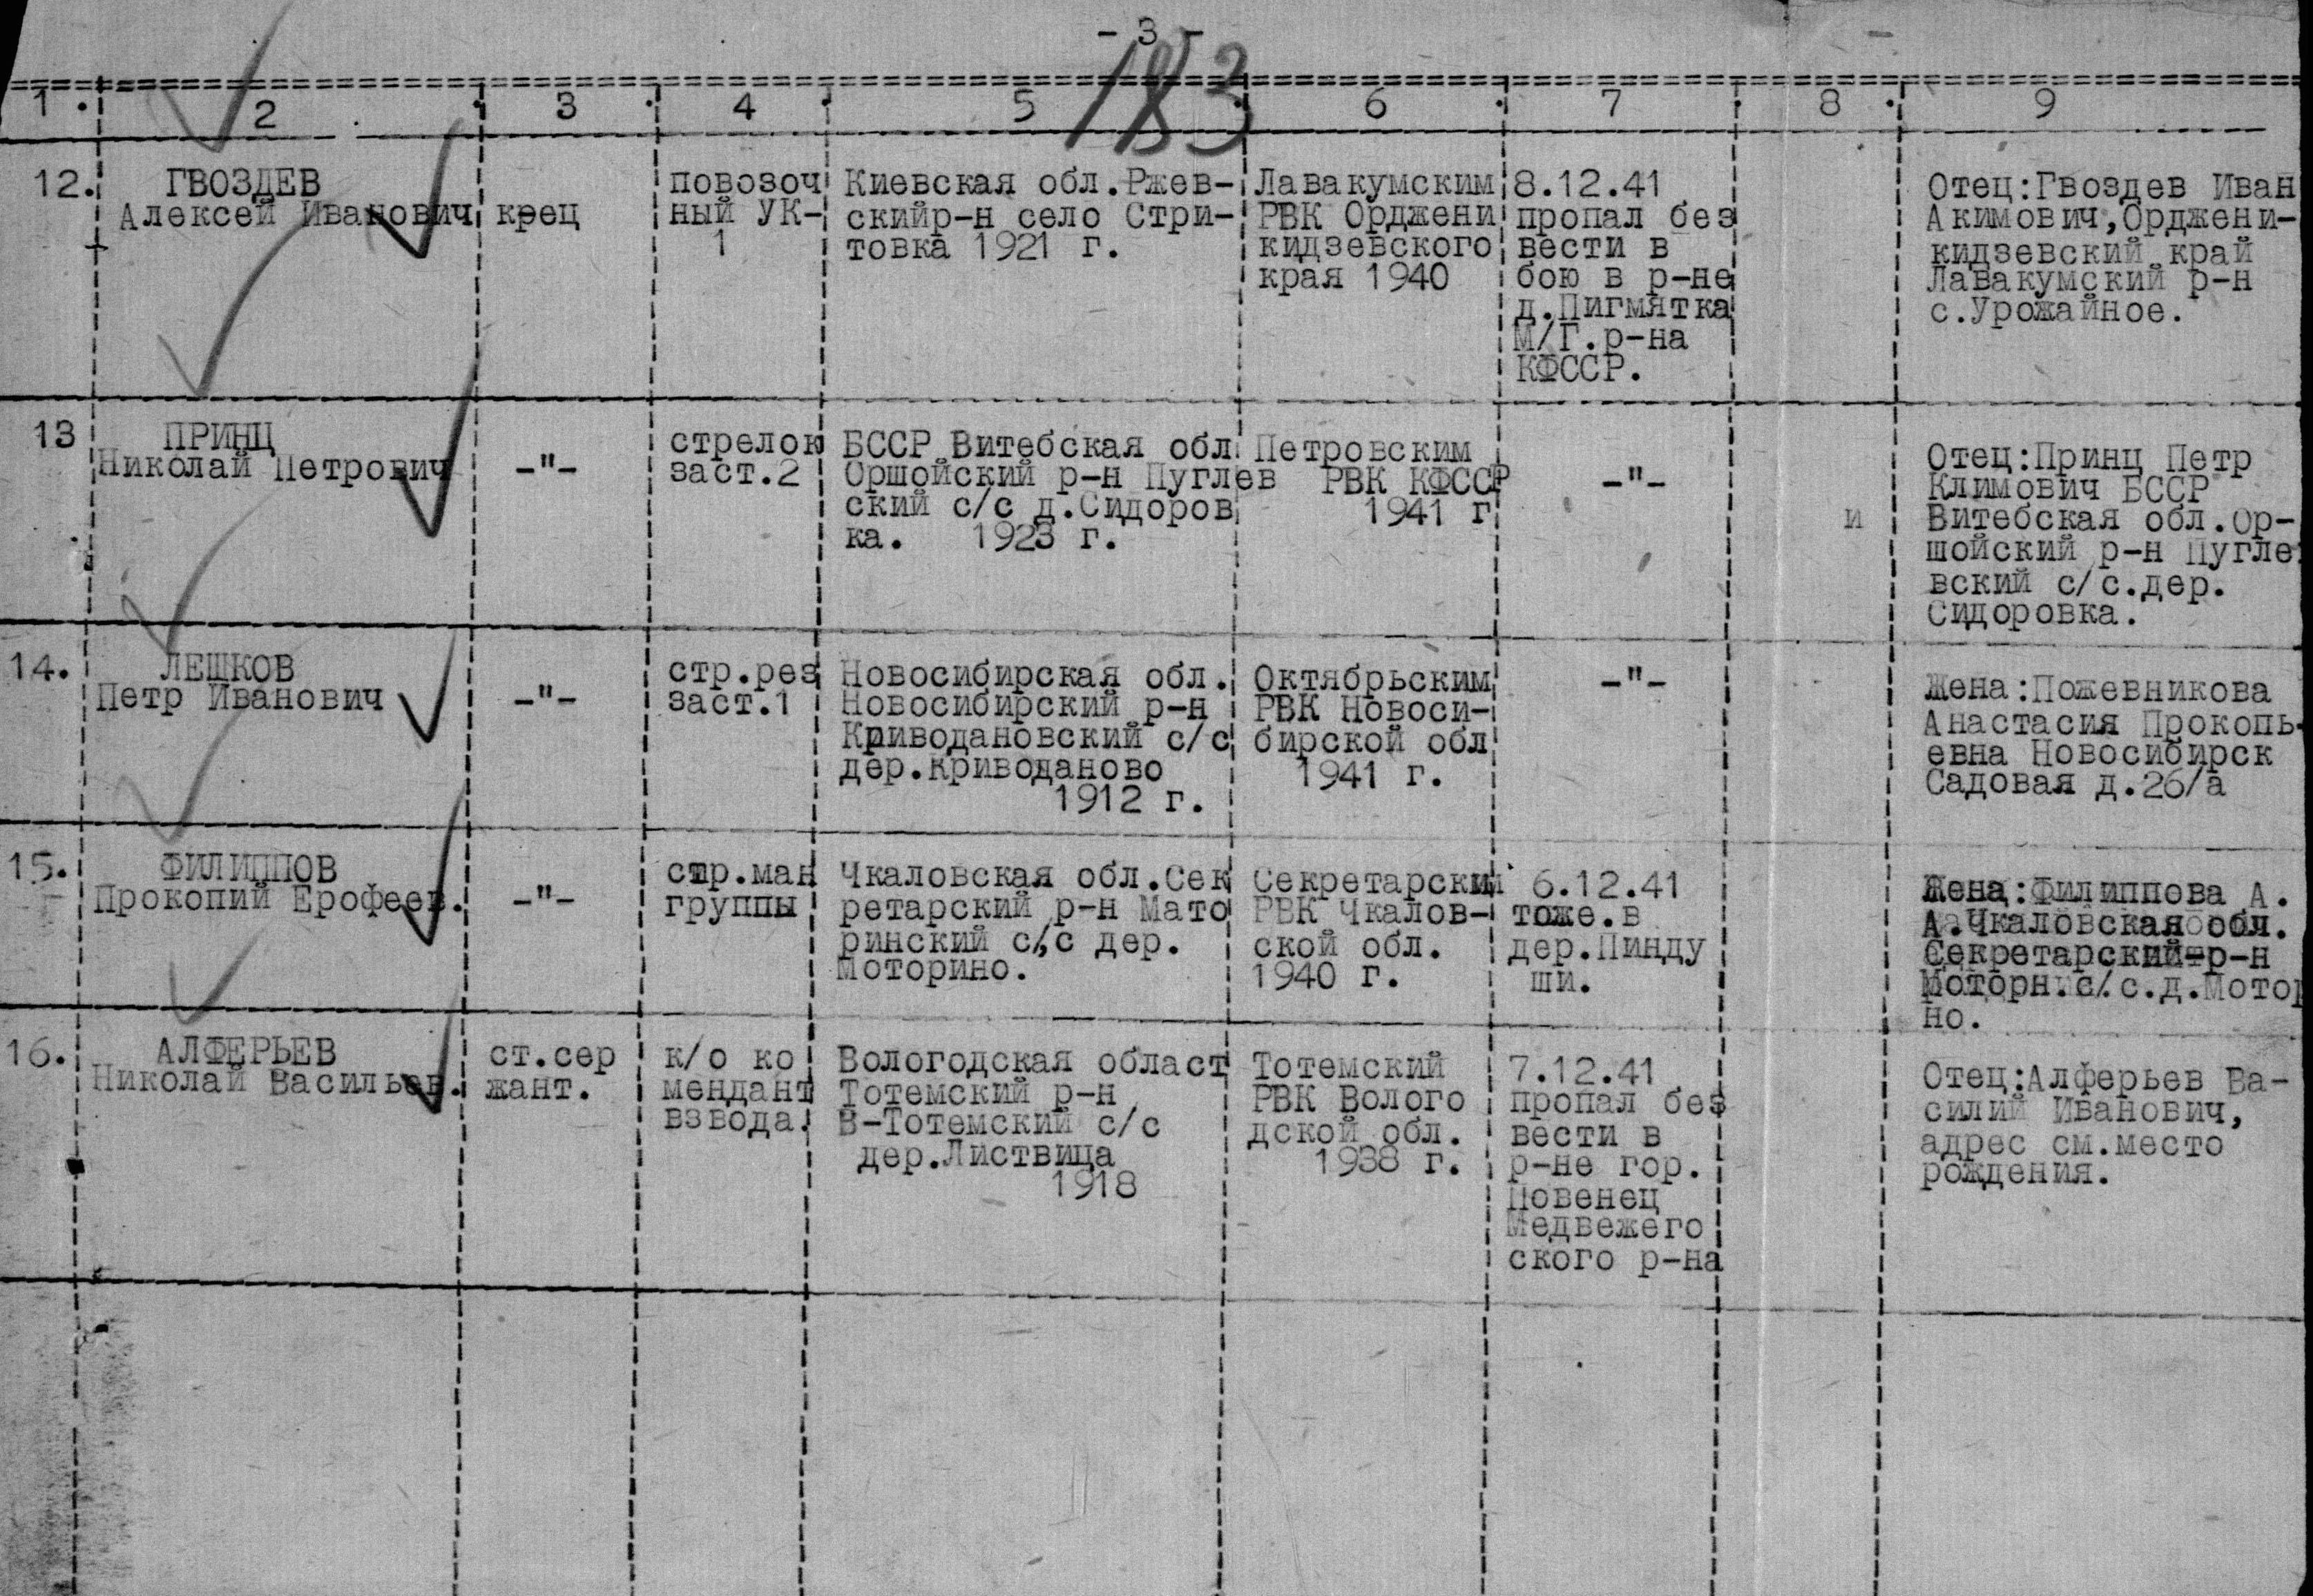 - 3 -
183
1. 2 3 4 5 6 7 8 9
12.
ГВОЗДЕВ
Алексей Иванович
крец
повозоч
ный УК-
1
Киевская обл.Ржев-
скийр-н село Стри-
товка 1921 г.
Лавакумским
РВК Орджени
кидзевского
края 1940
8.12.41
пропал без
вести в
бою в р-не
д.Пигматка
М/Г.р-на
КФССР.
Отец:Гвоздев Иван
Акимович,Орджени-
кидзевский край
Лавакумский р-н
с.Урожайное.
13
ПРИНЦ
Николай Петрович
-"-
стрелок
заст.2
БССР Витебская обл
Оршойский р-н Пуглев
ский с/с д.Сидоров
ка. 1923 г.
Петровским
РВК КФССР
1941 г
-"-
и
Отец:Принц Петр
Климович БССР
Витебская обл.Ор-
шойский р-н Пугле
вский с/с.дер.
Сидоровка.
14.
ЛЕШКОВ
Петр Иванович
-"-
стр.рез
заст.1
Новосибирская обл.
Новосибирский р-н
Криводановский с/с
дер.Криводаново
1912 г.
Октябрьским
РВК Новоси-
бирской обл
1941 г.
-"-
Жена:Пожевникова
Анастасия Прокопь-
евна Новосибирск
Садовая д.26/а
15.
ФИЛИППОВ
Прокопий Ерофеев.
-"-
стр.ман
группы
Чкаловская обл.Сек
ретарский р-н Мато
ринский с/с дер.
Моторино.
Секретарский
РВК Чкалов-
ской обл.
1940 г.
6.12.41
тоже.в
дер.Пинду
ши.
Жена:Филиппова А.
А.Чкаловская обл.
Секретарский р-н
Моторн.с/с.д.Мотор
но.
16.
АЛФЕРЬЕВ
Николай Васильев.
ст.сер
жант.
к/о ко
мендант
взвода.
Вологодская област
Тотемский р-н
В-Тотемский с/с
дер.Листвица
1918
Тотемский
РВК Волого
дской обл.
1938 г.
7.12.41
пропал без
вести в
р-не гор.
Повенец
Медвежего
ского р-на
Отец:Алферьев Ва-
силий Иванович,
адрес см.место
рождения.